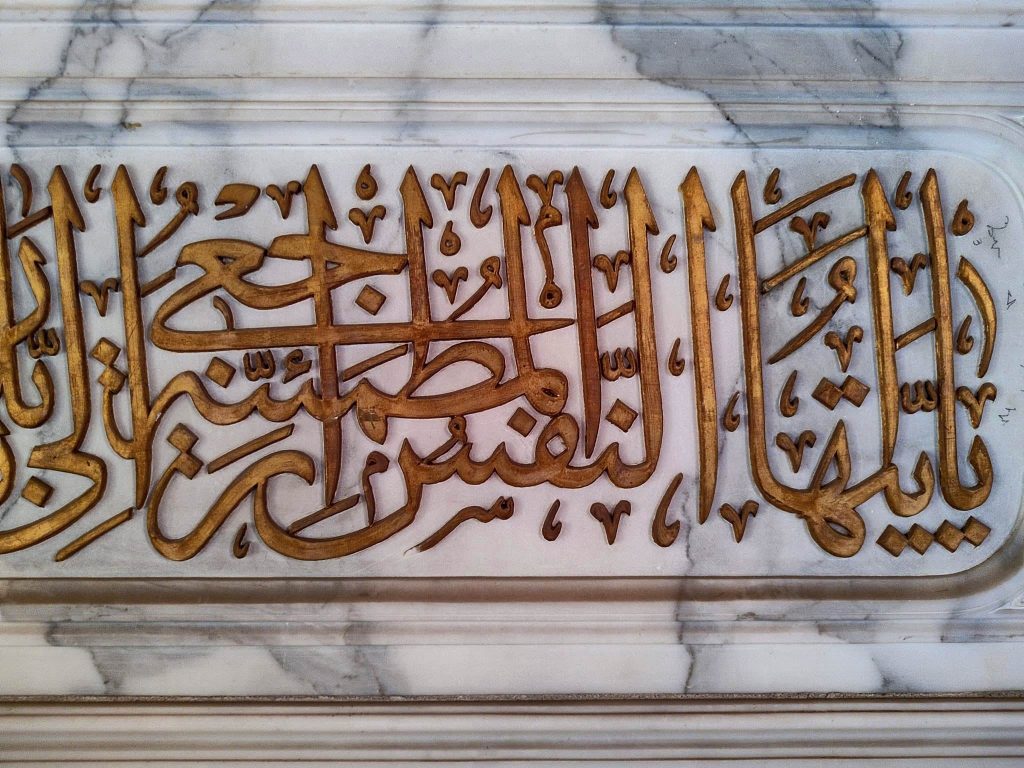 يَا اَيَّتُهَا النَّفْسُ الْمُطْمَئِنَّةُ ارْجِعِي اِلَى